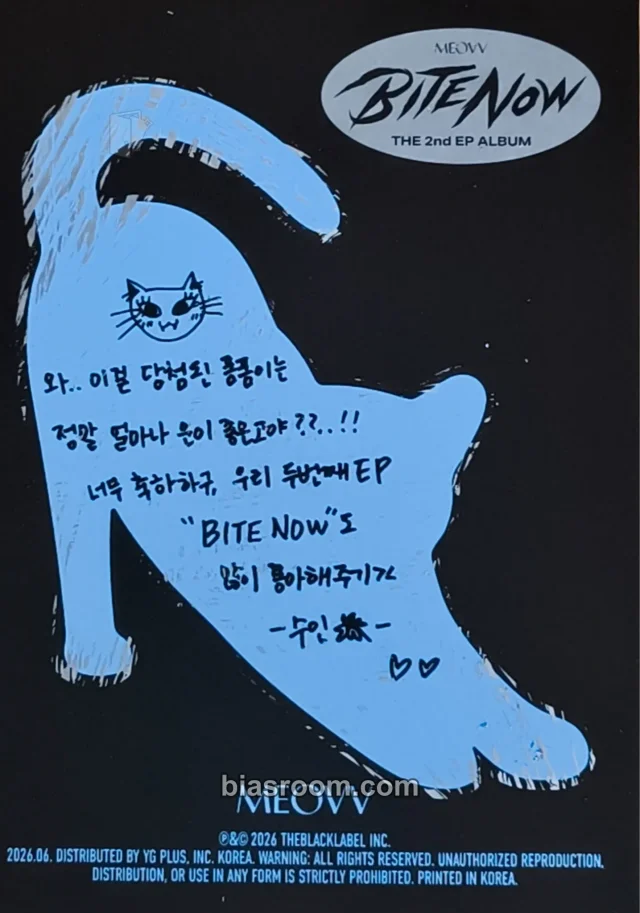 MEOVV
BITE NOW
THE 2nd EP ALBUM
와.. 이걸 당첨된 퐁퐁이는
정말 얼마나 운이 좋은고야??..!!
너무 축하하구, 우리 두번째 EP
"BITE NOW"도
많이 좋아해주기지
-수인 -
♡♡
biasroom.com
MEOVV
℗&© 2026 THEBLACKLABEL INC.
2026.06. DISTRIBUTED BY YG PLUS, INC. KOREA. WARNING: ALL RIGHTS RESERVED. UNAUTHORIZED REPRODUCTION,
DISTRIBUTION, OR USE IN ANY FORM IS STRICTLY PROHIBITED. PRINTED IN KOREA.